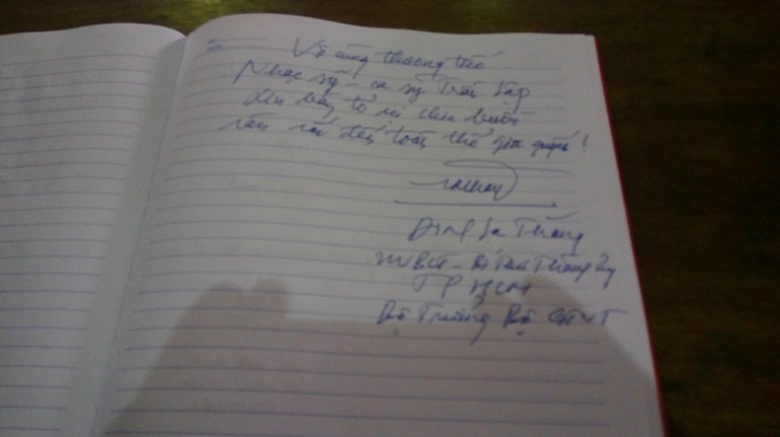 Vô cùng thương tiếc
Nhạc sỹ - ca sỹ Trần Lập
Xin bày tỏ sự chia buồn
sâu sắc đến toàn thể gia quyến!
Đinh La Thăng
UVBCT - Bí thư Thành ủy
TP HCM
Bộ Trưởng Bộ GTVT